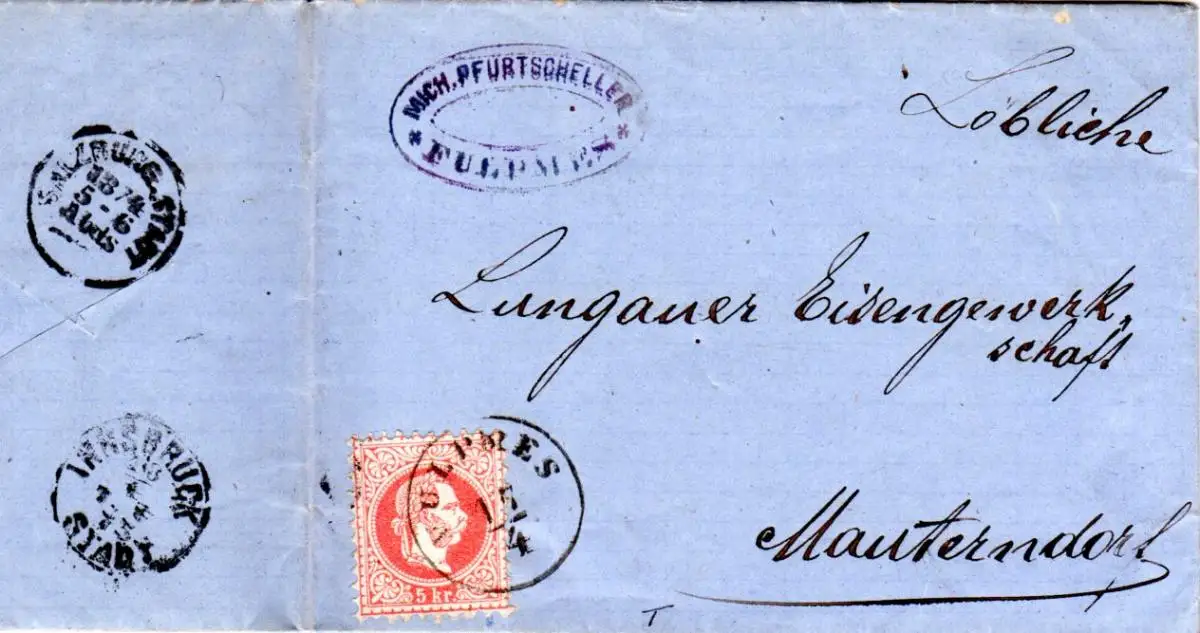 MICH. PFURTSCHELLER
FULPMES
Löbliche
SALZBURG-STADT
1874
5-6
Abds
Lungauer Eisengewerk-
schaft
INNSBRUCK
STADT
FULPMES
5 kr.
Mauterndorf